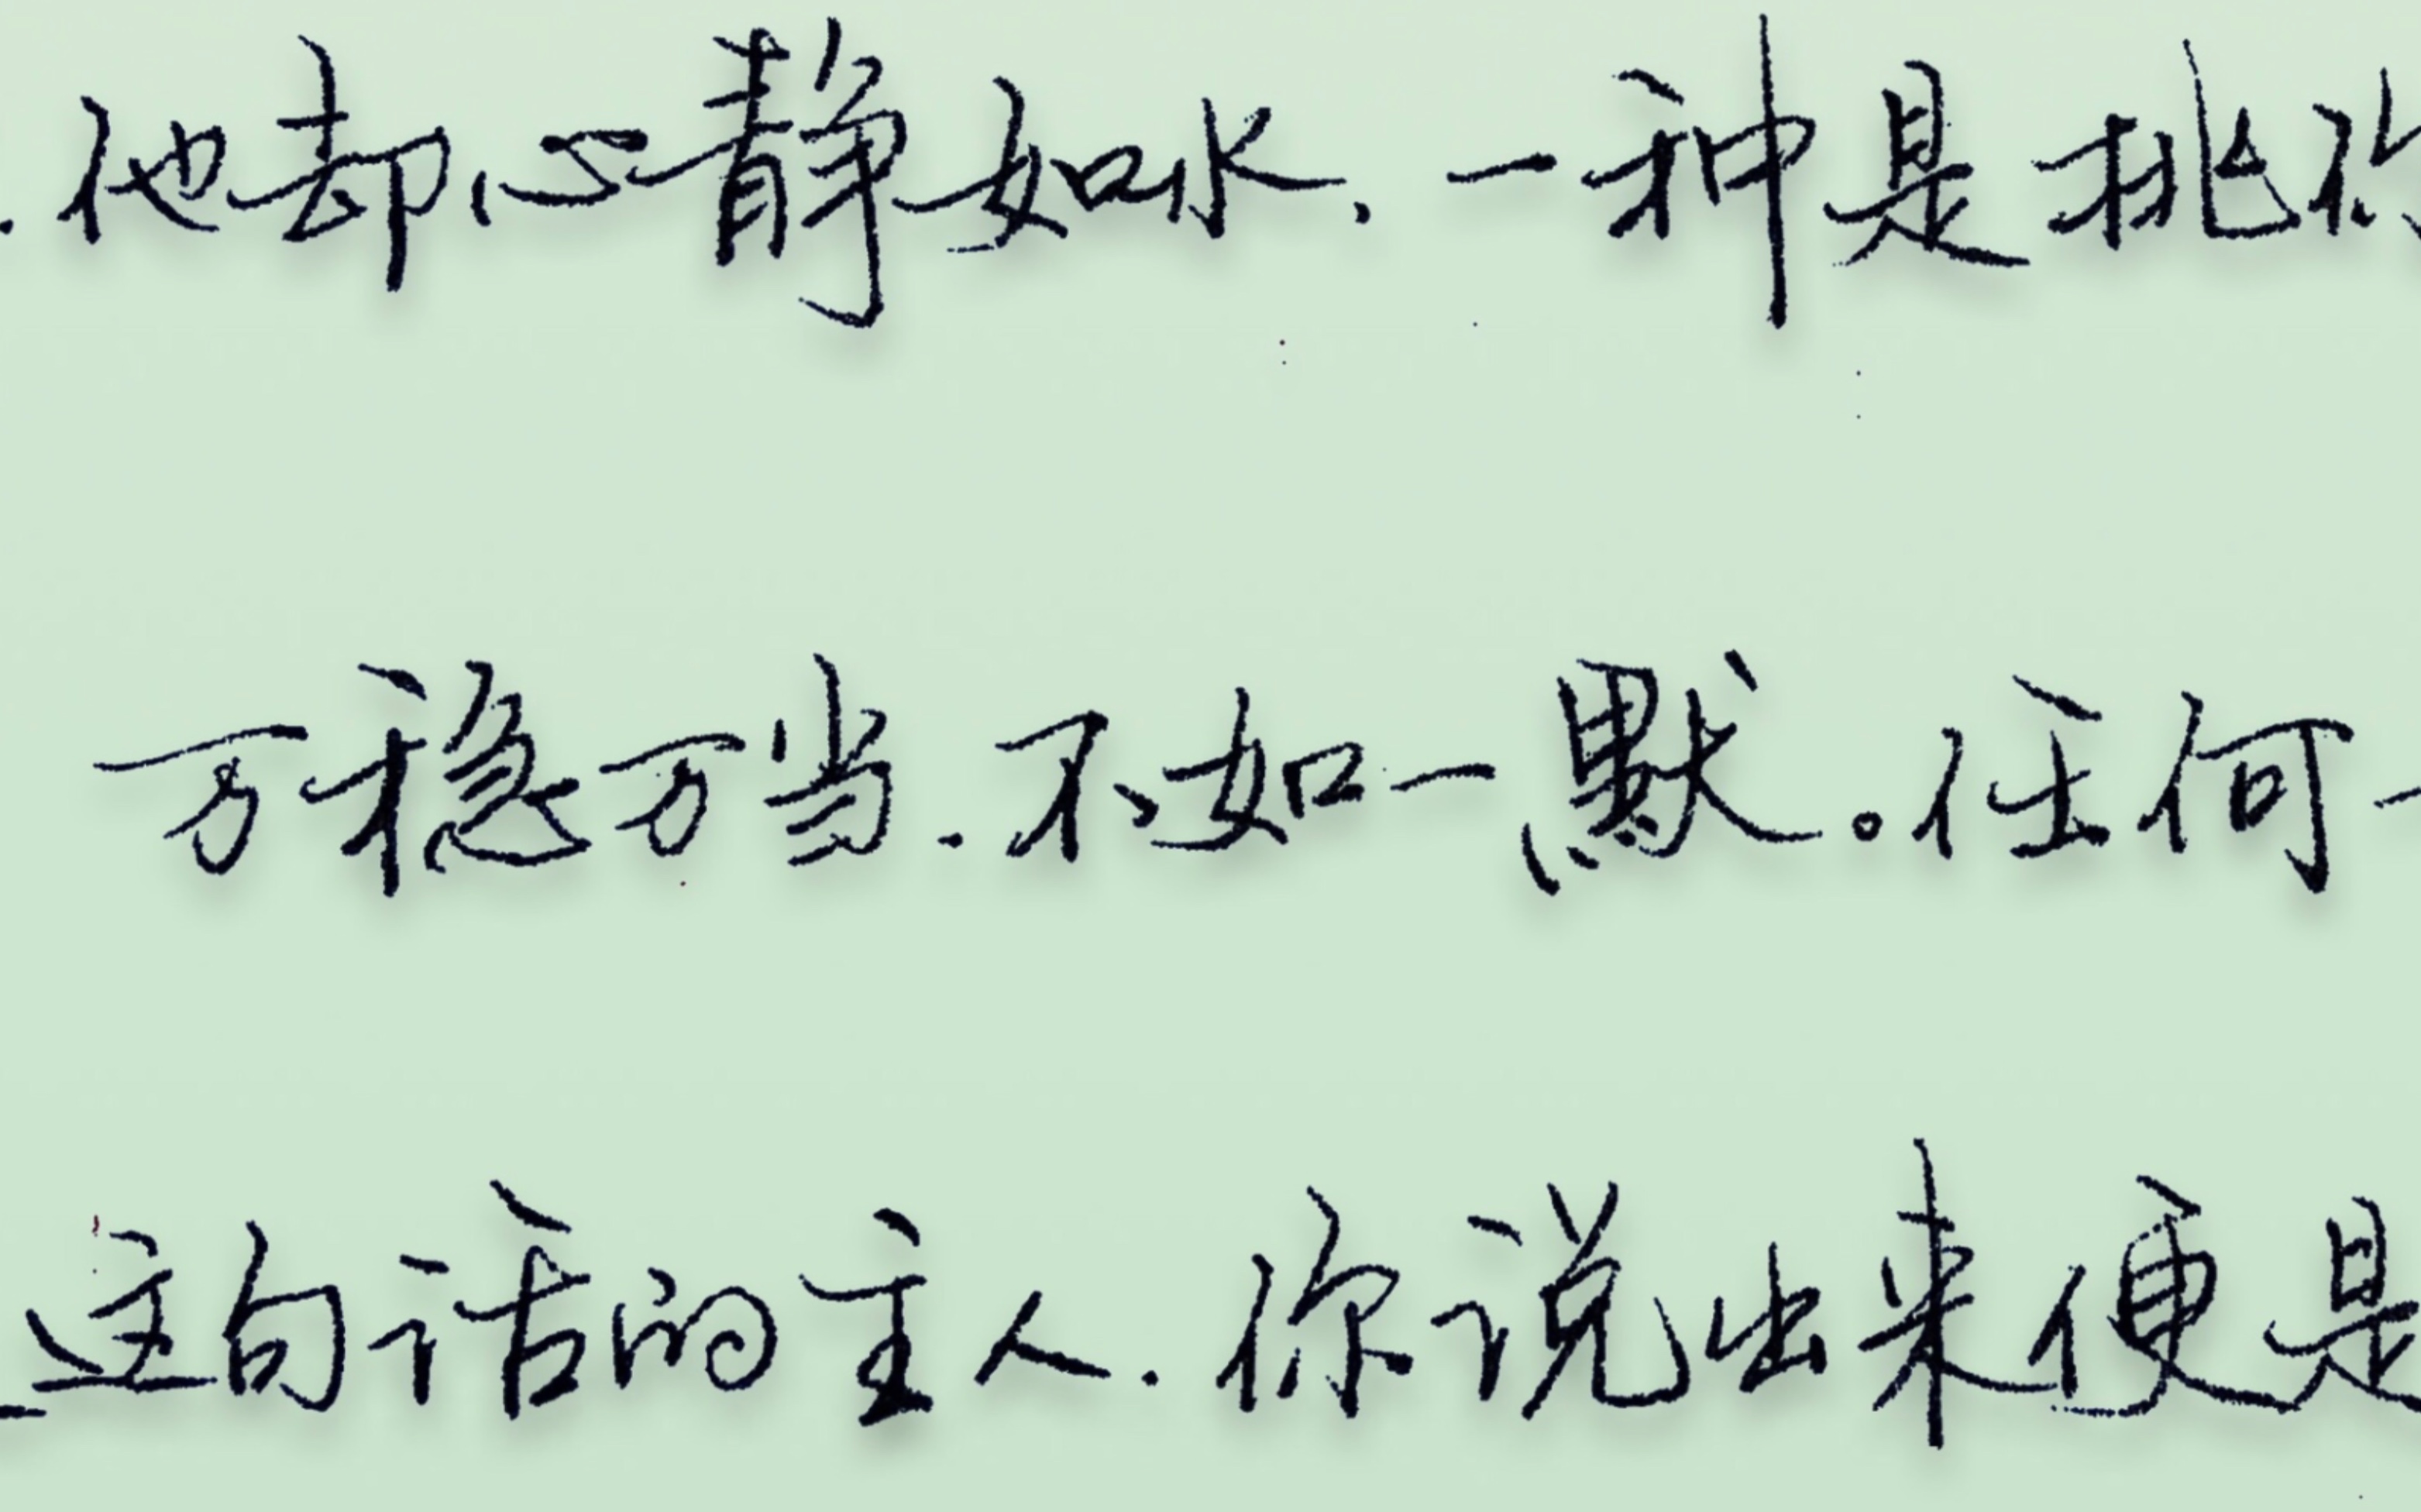 .他却心静如水.一种是挑你
万稳万当.不如一默。任何一
这句话的主人.你说出来便是